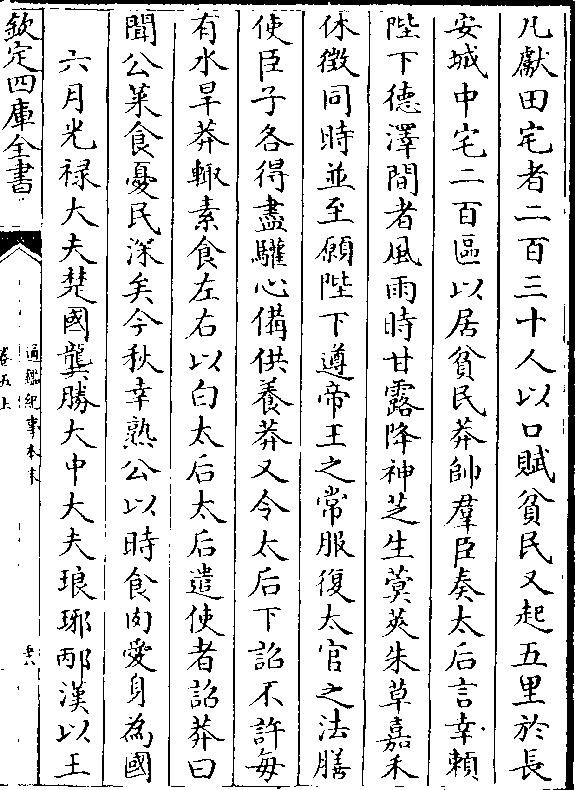 凡獻田宅者二百三十人以口賦貧民又起五里於長
安城中宅二百區以居貧民莽帥羣臣奏太后言幸頼
陛下德澤間者風雨時甘露降神芝生蓂莢朱草嘉禾
休徴同時並至願陛下遵帝王之常服復太官之法膳
使臣子各得盡驩心備供養莽又令太后下詔不許每
有水旱莽輙素食左右以白太后太后遣使者詔莽曰
聞公菜食憂民深矣今秋幸熟公以時食肉愛身為國
六月光禄大夫楚國龔勝大中大夫琅琊邴漢以王
欽定四庫全書
通鑑紀事本末
卷五上